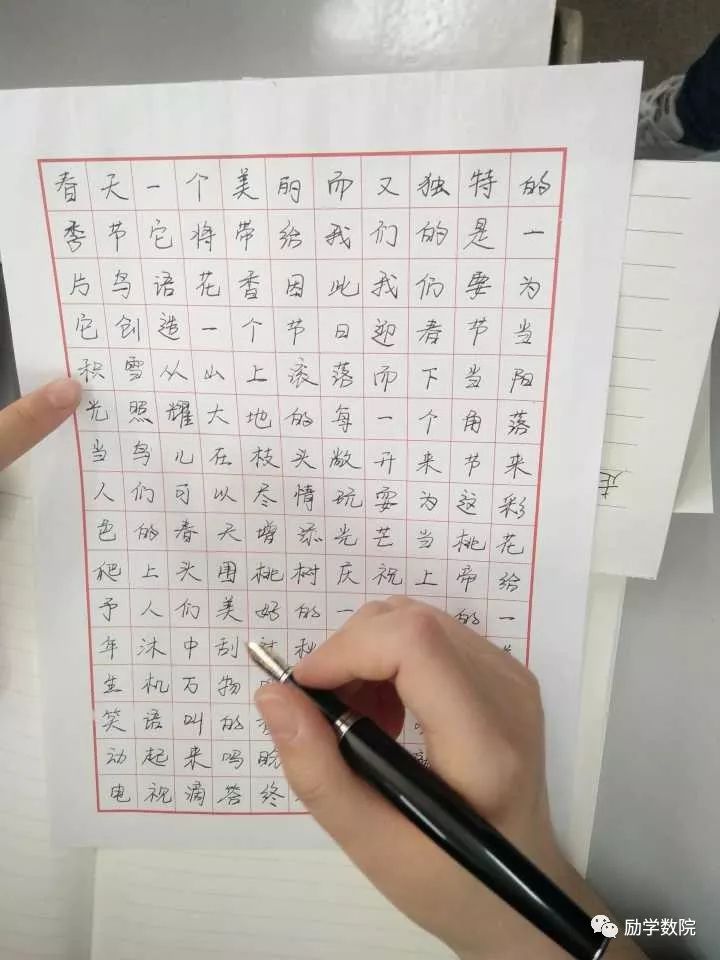 春天一个美丽而又独特的
季节它将带给我们的是一
片鸟语花香因此我们要为
它创造一个节日迎春节当
积雪从山上滚落而下当阳
光照耀大地的每一个角落
当鸟儿在枝头敞开来节来
人们可以尽情玩耍为这彩
色的春天增添光芒当桃花
爬上头围桃树庆祝上帝给
予人们美好的一的一
年沐中刮秋
生机万物
笑语叫的
动起来吗晚
电视滴答终
走
励学数院